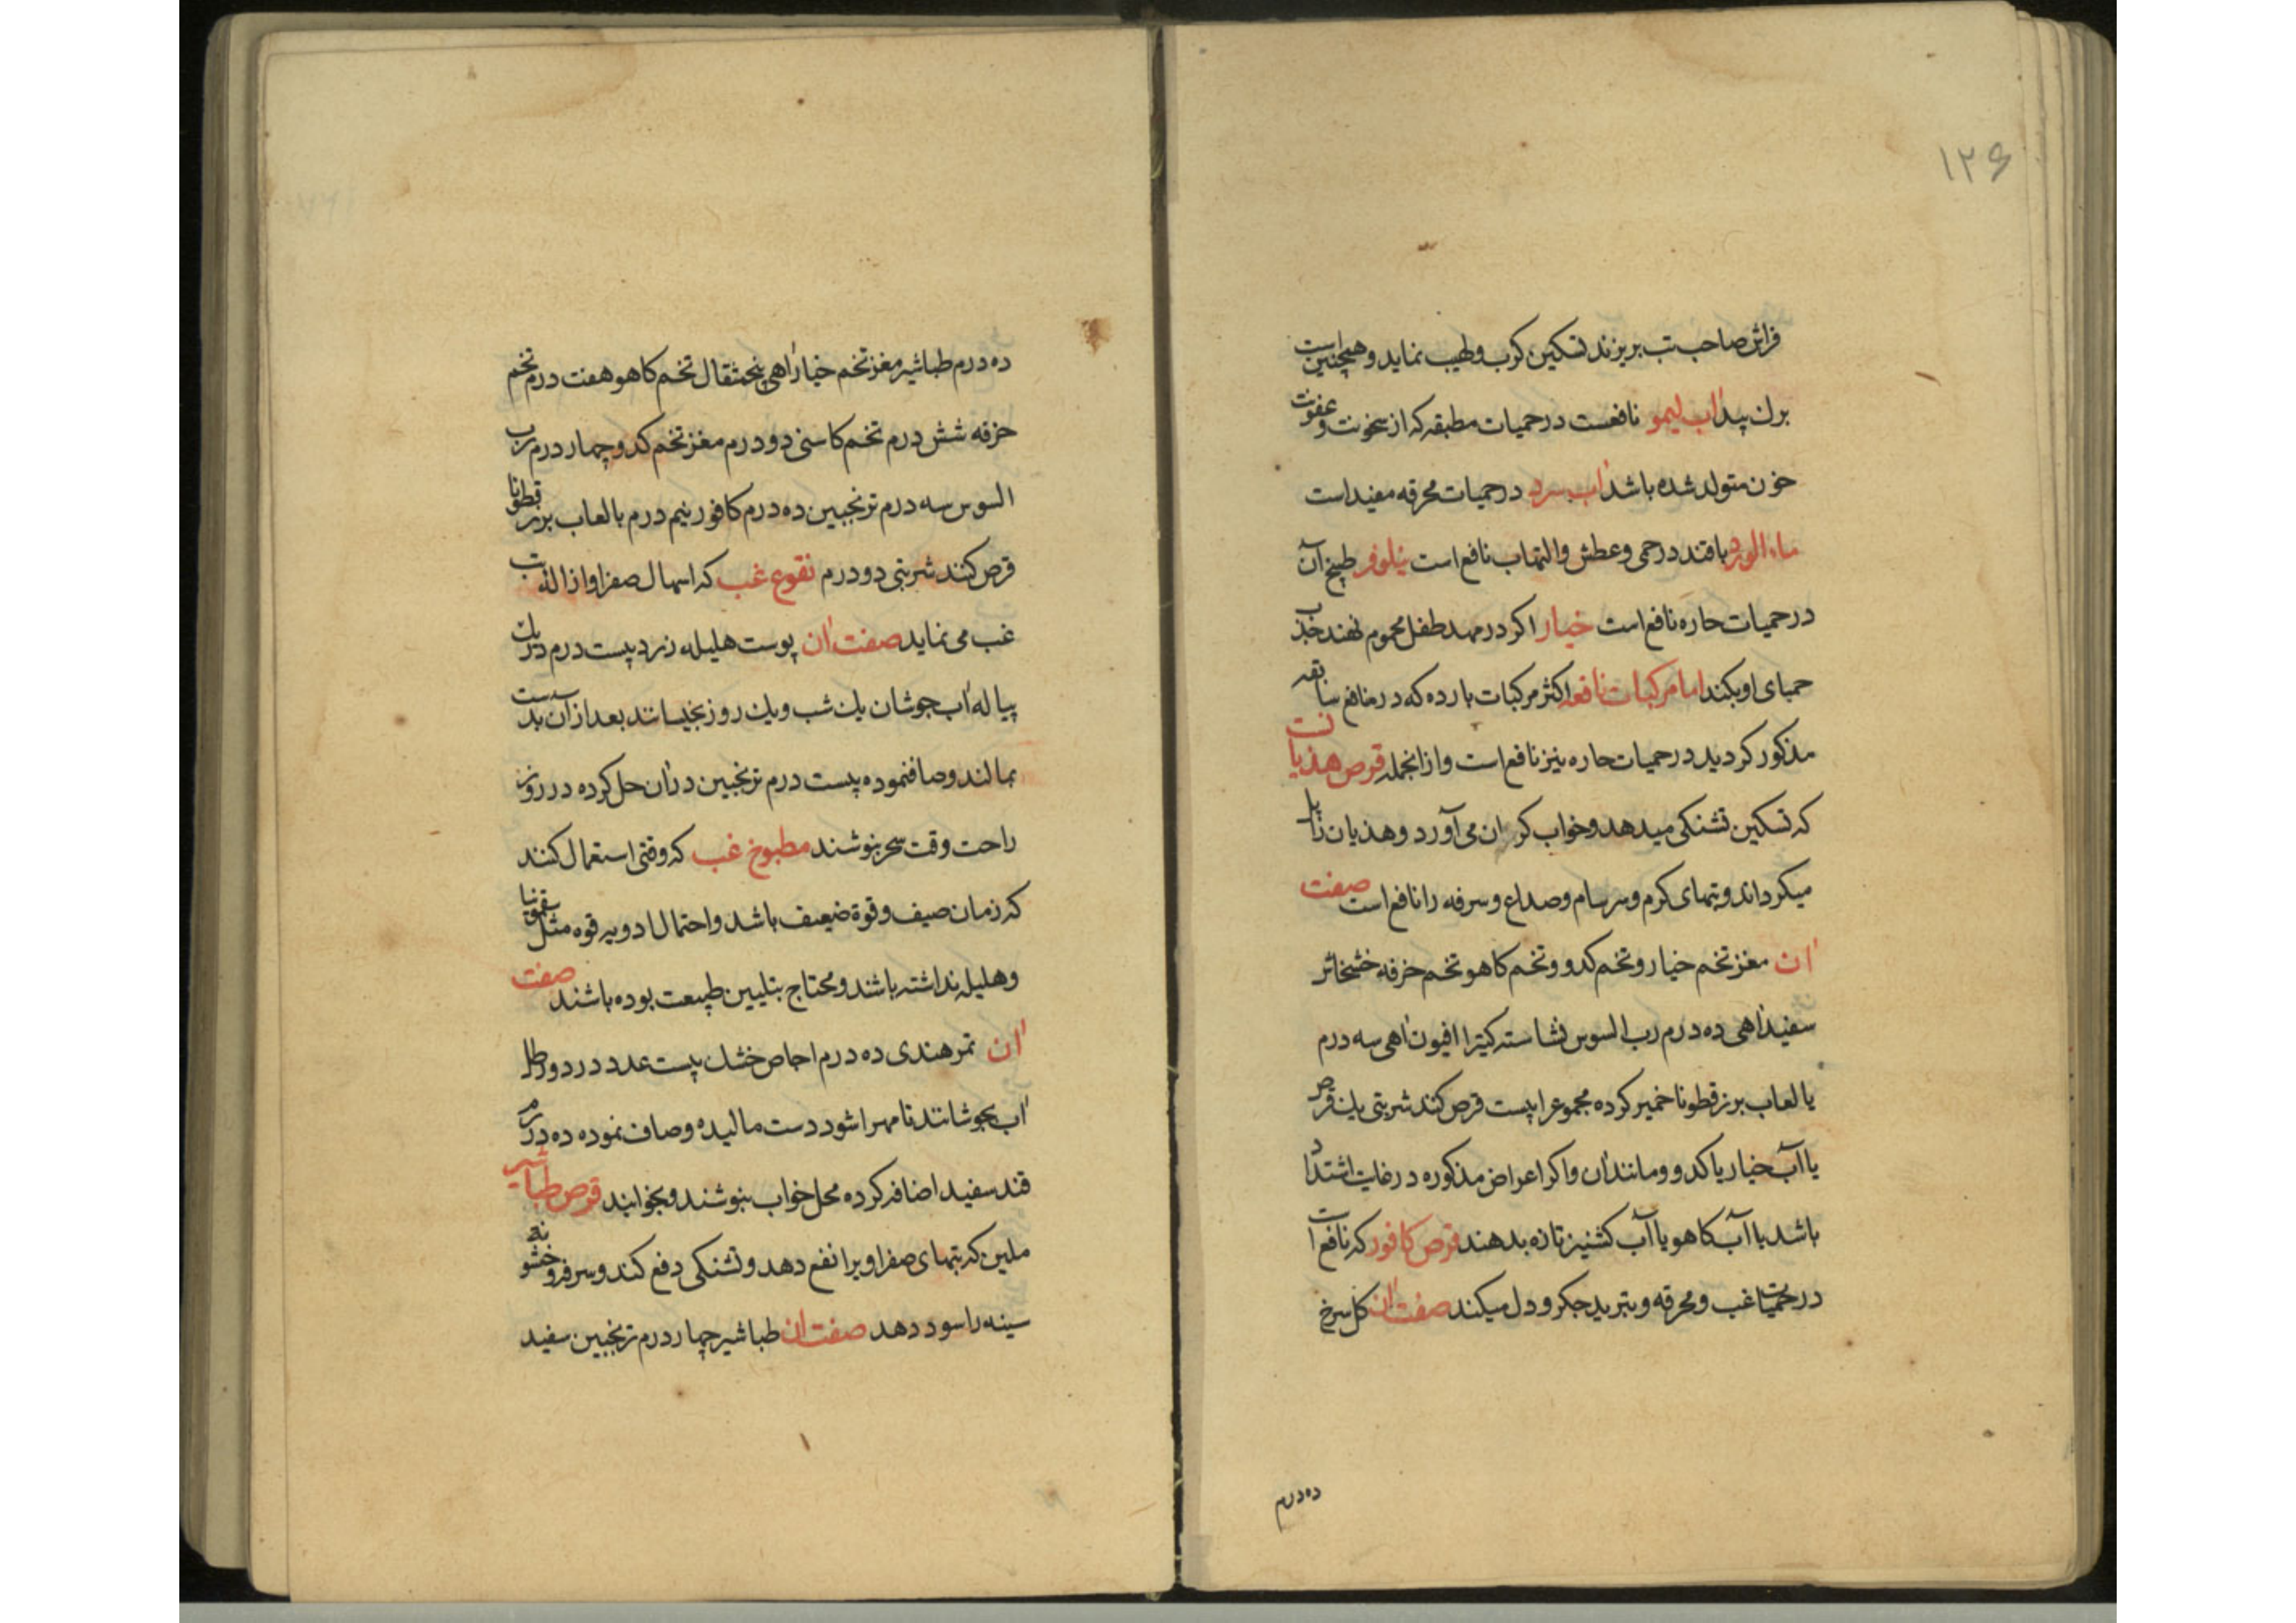 ١٢٦
فراش صاحب تب بریزند تسکین کرب ولهیب نماید وهمچنین است
برك بید اب لیمو نافعست در حمیات مطبقه که از سخونت وعفونت
خون متولد شده باشد اب سرد در حمیات محرقه مفید است
ماء الورد باقند در حمی وعطش والتهاب نافع است نیلوفر طبیخ آن
در حمیات حاره نافع است خیار اکر در مهد طفل محموم نهند جذب
حمیای او بکند اما مرکبات نافعه اکثر مرکبات بارده که در منافع سابقه
مذکور کردید در حمیات حاره نیز نافع است واز انجمله قرص هذیانست
که تسکین تشنکی میدهد وخواب کران می آورد وهذیان زایل
میکرداند وتبهای کرم وسرسام وصداع وسرفه را نافع است صفت
ان مغز تخم خیار وتخم کدو وتخم کاهو تخم خرفه خشخاش
سفید اهی ده درم رب السوس نشاسته کتیرا افیون اهی سه درم
بالعاب بزرقطونا خمیر کرده مجموع را بیست قرص کند شربتی یك قرص
با آب خیار یا کدو ومانند ان واکر اعراض مذکوره در غایت اشتداد
باشد با آب کاهو یا آب کشنیز تازه بدهند قرص کافور که نافع است
در حمیات غب ومحرقه وتبرید جکر ودل میکند صفت ان کل سرخ
ده درم
ده درم طباشیر مغز تخم خیار اهی پنجمثقال تخم کاهو هفت درم تخم
خرفه شش درم تخم کاسنی دو درم مغز تخم کدو چهار درم رب
السوس سه درم ترنجبین ده درم کافور نیم درم بالعاب بزر قطونا
قرص کنند شربتی دو درم نقوع غب که اسهال صفرا وازاله تب
غب می نماید صفت ان پوست هلیله زرد بیست درم در یك
پیاله اب جوشان یك شب ویك روز بخیسانند بعد از آن بدست
بمالند وصاف نموده بیست درم ترنجبین در ان حل کرده در روز
راحت وقت سحر بنوشند مطبوخ غب که وقتی استعمال کنند
که زمان صیف وقوة ضعیف باشد واحتمال ادویه قوه مثل سقمونیا
وهلیله نداشته باشند ومحتاج بتلیین طبیعت بوده باشند صفت
ان تمر هندی ده درم اجاص خشك بیست عدد در دو رطل
اب بجوشانند تا مهرا شود دست مالیده وصاف نموده ده درم
قند سفید اضافه کرده محل خواب بنوشند وبخوابند قرص طباشیر
ملین که تبهای صفراویرا نفع دهد وتشنکی دفع کند وسرفه وخشونه
سینه را سود دهد صفت ان طباشیر چهار درم ترنجبین سفید